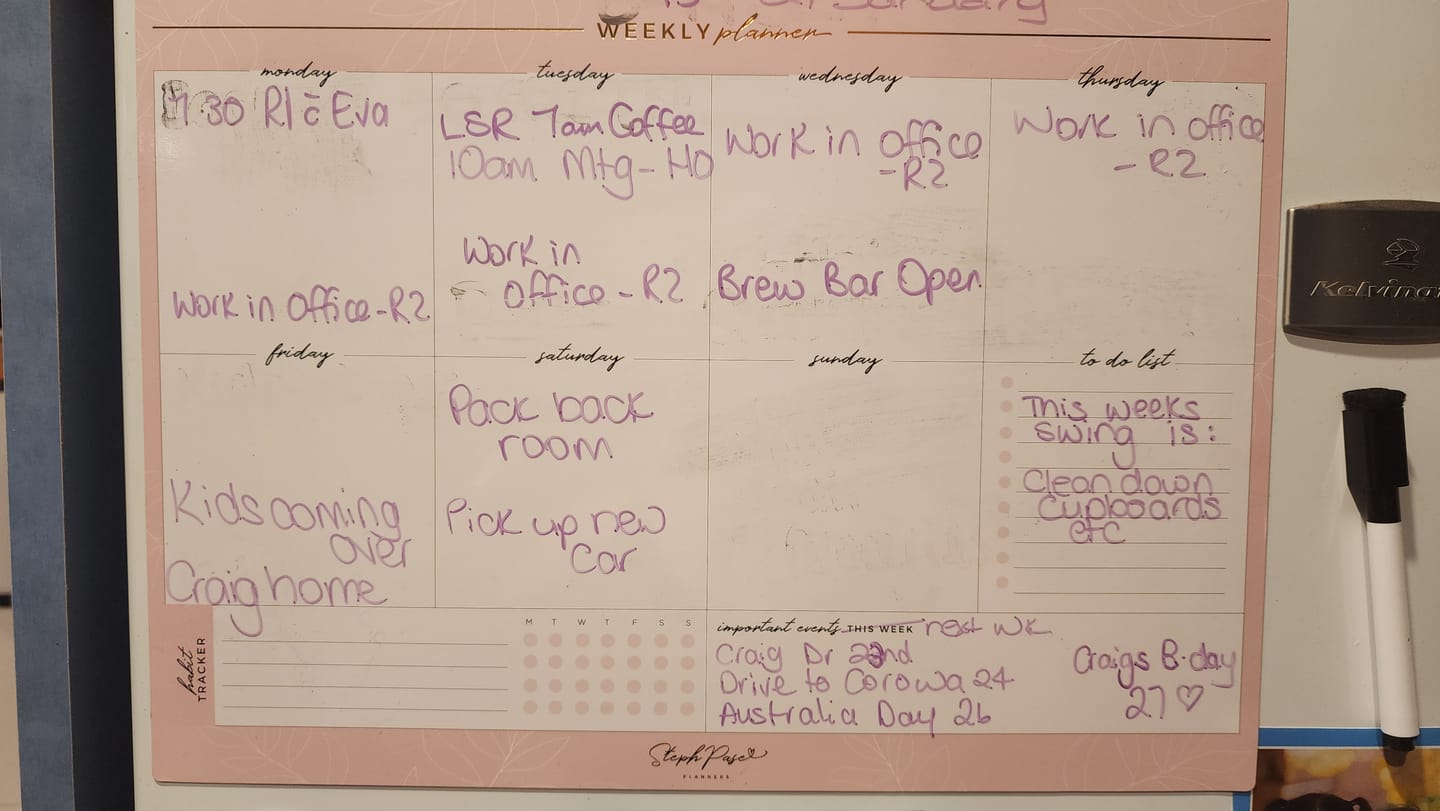 WEEKLY planner
monday
730 R1 c̄ Eva
Work in Office-R2
tuesday
LSR 7am Coffee
10am Mtg-HO
Work in
Office-R2
wednesday
Work in Office
-R2
Brew Bar Open
thursday
Work in office
-R2
friday
Kids coming
over
Craig home
saturday
Pack back
room
Pick up new
Car
sunday
to do list
This weeks
swing is:
Clean down
Cupboards
etc
habit
TRACKER
M T W T F S S
important events THIS WEEK next wk
Craig Dr 22nd
Drive to Corowa 24
Australia Day 26
Craigs B.day
27 ♡
Steph Pase
PLANNERS
Kelvinat